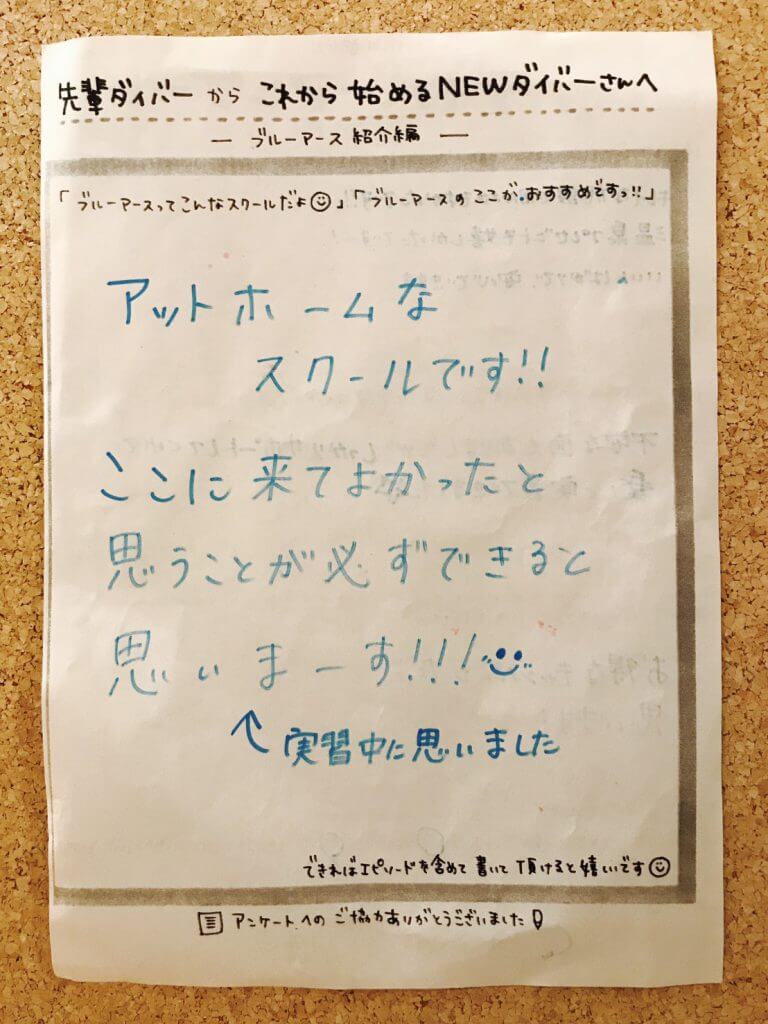 先輩ダイバーから これから始めるNEWダイバーさんへ
— ブルーアース紹介編 —
「ブルーアースってこんなスクールだよ☺」「ブルーアースの ここが、おすすめですっ!!」
アットホームな
スクールです!!
ここに来てよかったと
思うことが必ずできると
思いまーす!!!
↑実習中に思いました
できればエピソードを含めて書いて頂けると嬉しいです☺
アンケートへのご協力ありがとうございました